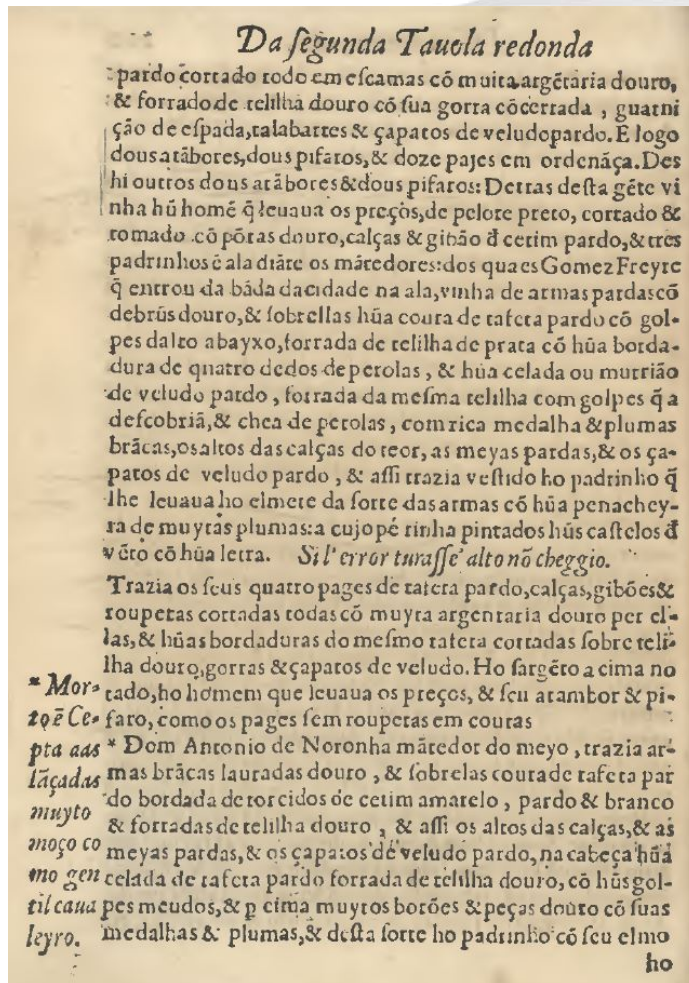 Da ſegunda Tauola redonda
pardo cortado todo em eſcamas cõ muita argẽtaria douro,
& forrado de telilha douro cõ ſua gorra cõcertada , guarni
ção de eſpada, talabartes & çapatos de veludo pardo. E logo
dous atãbores, dous pifaros, & doze pajes em ordenãça. Des
hi outros dous atãbores & dous pifaros: Detras deſta gẽte vi
nha hũ homẽ q̃ leuaua os preços, de pelote preto, cortado &
tomado cõ põtas douro, calças & gibão đ cetim pardo, & tres
padrinhos ẽ ala diãte os mãtedores: dos quaes Gomez Freyre
q̃ entrou da bãda da cidade na ala, vinha de armas pardas cõ
debrũs douro, & ſobrellas hũa coura de tafeta pardo cõ gol-
pes dalto abayxo, forrada de telilha de prata cõ hũa borda-
dura de quatro dedos de perolas , & hũa celada ou murrião
de veludo pardo , forrada da meſma telilha com golpes q̃ a
deſcobriã, & chea de perolas , com rica medalha & plumas
brãcas, os altos das calças do teor, as meyas pardas, & os ça-
patos de veludo pardo , & aſſi trazia veſtido ho padrinho q̃
lhe leuaua ho elmete da ſorte das armas cõ hũa penachey-
ra de muytas plumas: a cujo pé tinha pintados hũs caſtelos đ
vẽto cõ hũa letra. Si l' error turaſſe' alto nõ cheggio.
Trazia os ſeus quatro pages de tafeta pardo, calças, gibões &
roupetas cortadas todas cõ muyta argentaria douro per el-
las, & hũas bordaduras do meſmo tafeta cortadas ſobre teli-
lha douro, gorras & çapatos de veludo. Ho ſargẽto acima no
tado, ho homem que leuaua os preços, & ſeu atambor & pi-
faro, como os pages ſem roupetas em couras
* Dom Antonio de Noronha mãtedor do meyo , trazia ar-
mas brãcas lauradas douro , & ſobrelas coura de tafeta par
do bordada de torcidos de cetim amarelo , pardo & branco
& forradas de telilha douro , & aſſi os altos das calças, & as
meyas pardas, & os çapatos de veludo pardo, na cabeça hũa
celada de tafeta pardo forrada de telilha douro, cõ hũs gol-
pes meudos, & p cima muytos botões & peças douro cõ ſuas
medalhas & plumas, & deſta ſorte ho padrinho cõ ſeu elmo
ho
* Mor-
to ẽ Ce-
pta aas
lãçadas
muyto
moço co
mo gen
til caua
leyro.